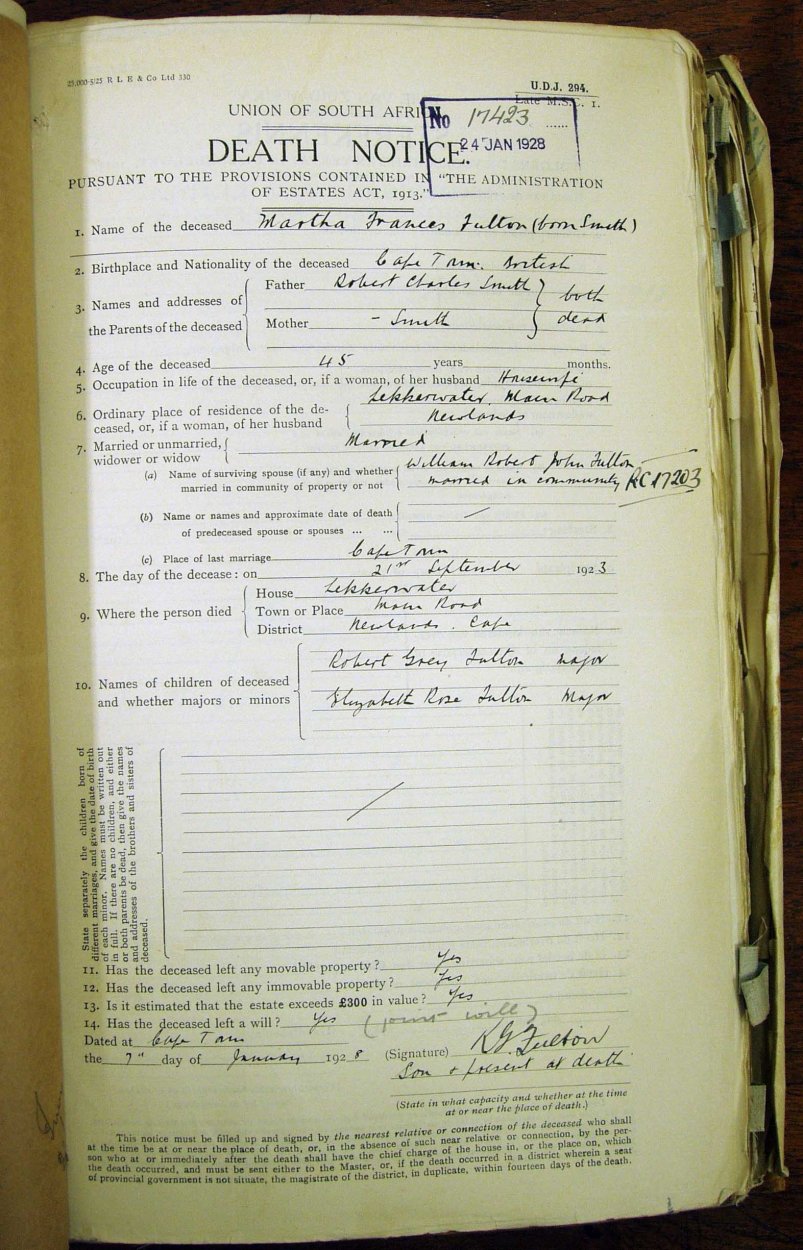 25,000-5/25 R L E & Co Ltd 330
U.D.J. 294.
Late M.S.C. 1.
UNION OF SOUTH AFRI
No 17423
24 JAN 1928
DEATH NOTICE.
PURSUANT TO THE PROVISIONS CONTAINED IN "THE ADMINISTRATION
OF ESTATES ACT, 1913."
1. Name of the deceased Martha Frances Fulton (born Smith)
2. Birthplace and Nationality of the deceased Cape Town. British
3. Names and addresses of the Parents of the deceased
Father Robert Charles Smith } both
Mother - Smith } dead
4. Age of the deceased 45 years months.
5. Occupation in life of the deceased, or, if a woman, of her husband Housewife
6. Ordinary place of residence of the de-
ceased, or, if a woman, of her husband
Lekkerwater, Main Road
Newlands
7. Married or unmarried,
widower or widow
Married
(a) Name of surviving spouse (if any) and whether
married in community of property or not
William Robert John Fulton
married in community RC 17203
(b) Name or names and approximate date of death
of predeceased spouse or spouses ... ...
(c) Place of last marriage Cape Town
8. The day of the decease: on 21st September 1923
9. Where the person died
House Lekkerwater
Town or Place Main Road
District Newlands. Cape
10. Names of children of deceased
and whether majors or minors
Robert Grey Fulton major
Elizabeth Rose Fulton Major
State separately the children born of
different marriages, and give the date of birth
of each minor. Names must be written out
in full. If there are no children, and either
or both parents be dead, then give the names
and addresses of the brothers and sisters of
deceased.
11. Has the deceased left any movable property? Yes
12. Has the deceased left any immovable property? Yes
13. Is it estimated that the estate exceeds £300 in value? Yes
14. Has the deceased left a will? Yes (joint will)
Dated at Cape Town
the 7th day of January 1928
(Signature) R G Fulton
Son & present at death
(State in what capacity and whether at the time
at or near the place of death.)
This notice must be filled up and signed by the nearest relative or connection of the deceased who shall
at the time be at or near the place of death, or, in the absence of such near relative or connection, by the per-
son who at or immediately after the death shall have the chief charge of the house in, or the place on, which
the death occurred, and must be sent either to the Master, or, if the death occurred in a district wherein a seat
of provincial government is not situate, the magistrate of the district, in duplicate, within fourteen days of the death.